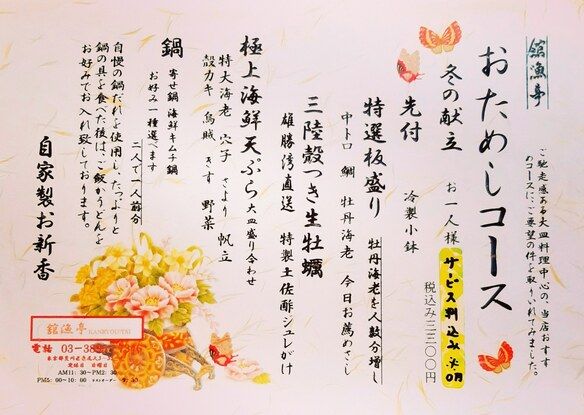 舘漁亭
おためしコース
ご馳走感ある大皿料理中心の、当店おすすめ
のコースに、ご要望の件を取りいれてみました。
冬の献立 お一人様 サービス料込み
税込み三三〇〇円
先付 冷製小鉢
特選板盛り 牡丹海老を人数分増し
中トロ 鯛 牡丹海老 今日お薦めさし
三陸殻つき生牡蠣
雄勝湾直送 特製土佐酢ジュレがけ
極上海鮮天ぷら 大皿盛り合わせ
特大海老 穴子 さより 帆立
殻カキ 烏賊 きす 野菜
鍋 寄せ鍋 海鮮キムチ鍋
お好み一種選べます 二人で一人前分
自慢の鍋だれを使用し、たっぷりと
鍋の具を食べた後は、ご飯かうどんを
お好みでお入れ致しております。
自家製お新香
舘漁亭 KANRYOUTEI
電話 03-38
定休日 日曜日
AM11:30~PM2:
PM5:00~10:00 ラストオーダー 9:30